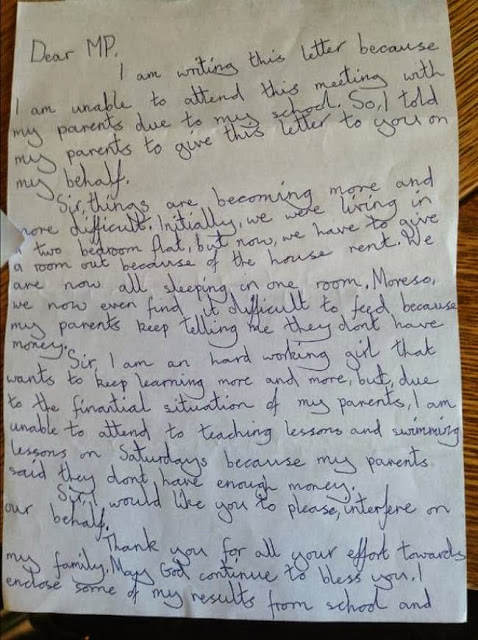 Dear MP,
I am writing this letter because
I am unable to attend this meeting with
my parents due to my school. So, I told
my parents to give this letter to you on
my behalf.
Sir, things are becoming more and
more difficult. Initially, we were living in
a two bedroom flat, but now, we have to give
a room out because of the house rent. We
are now all sleeping in one room, Moreso,
we now even find it difficult to feed, because
my parents keep telling me they dont have
money.
Sir, I am an hard working girl that
wants to keep learning more and more, but, due
to the finantial situation of my parents, I am
unable to attend to teaching lessons and swimming
lessons on Saturdays because my parents
said they dont have enough money.
Sir, I would like you to please, interfere on
our behalf.
Thank you for all your effort towards
my family. May God continue to bless you. I
enclose some of my results from school and